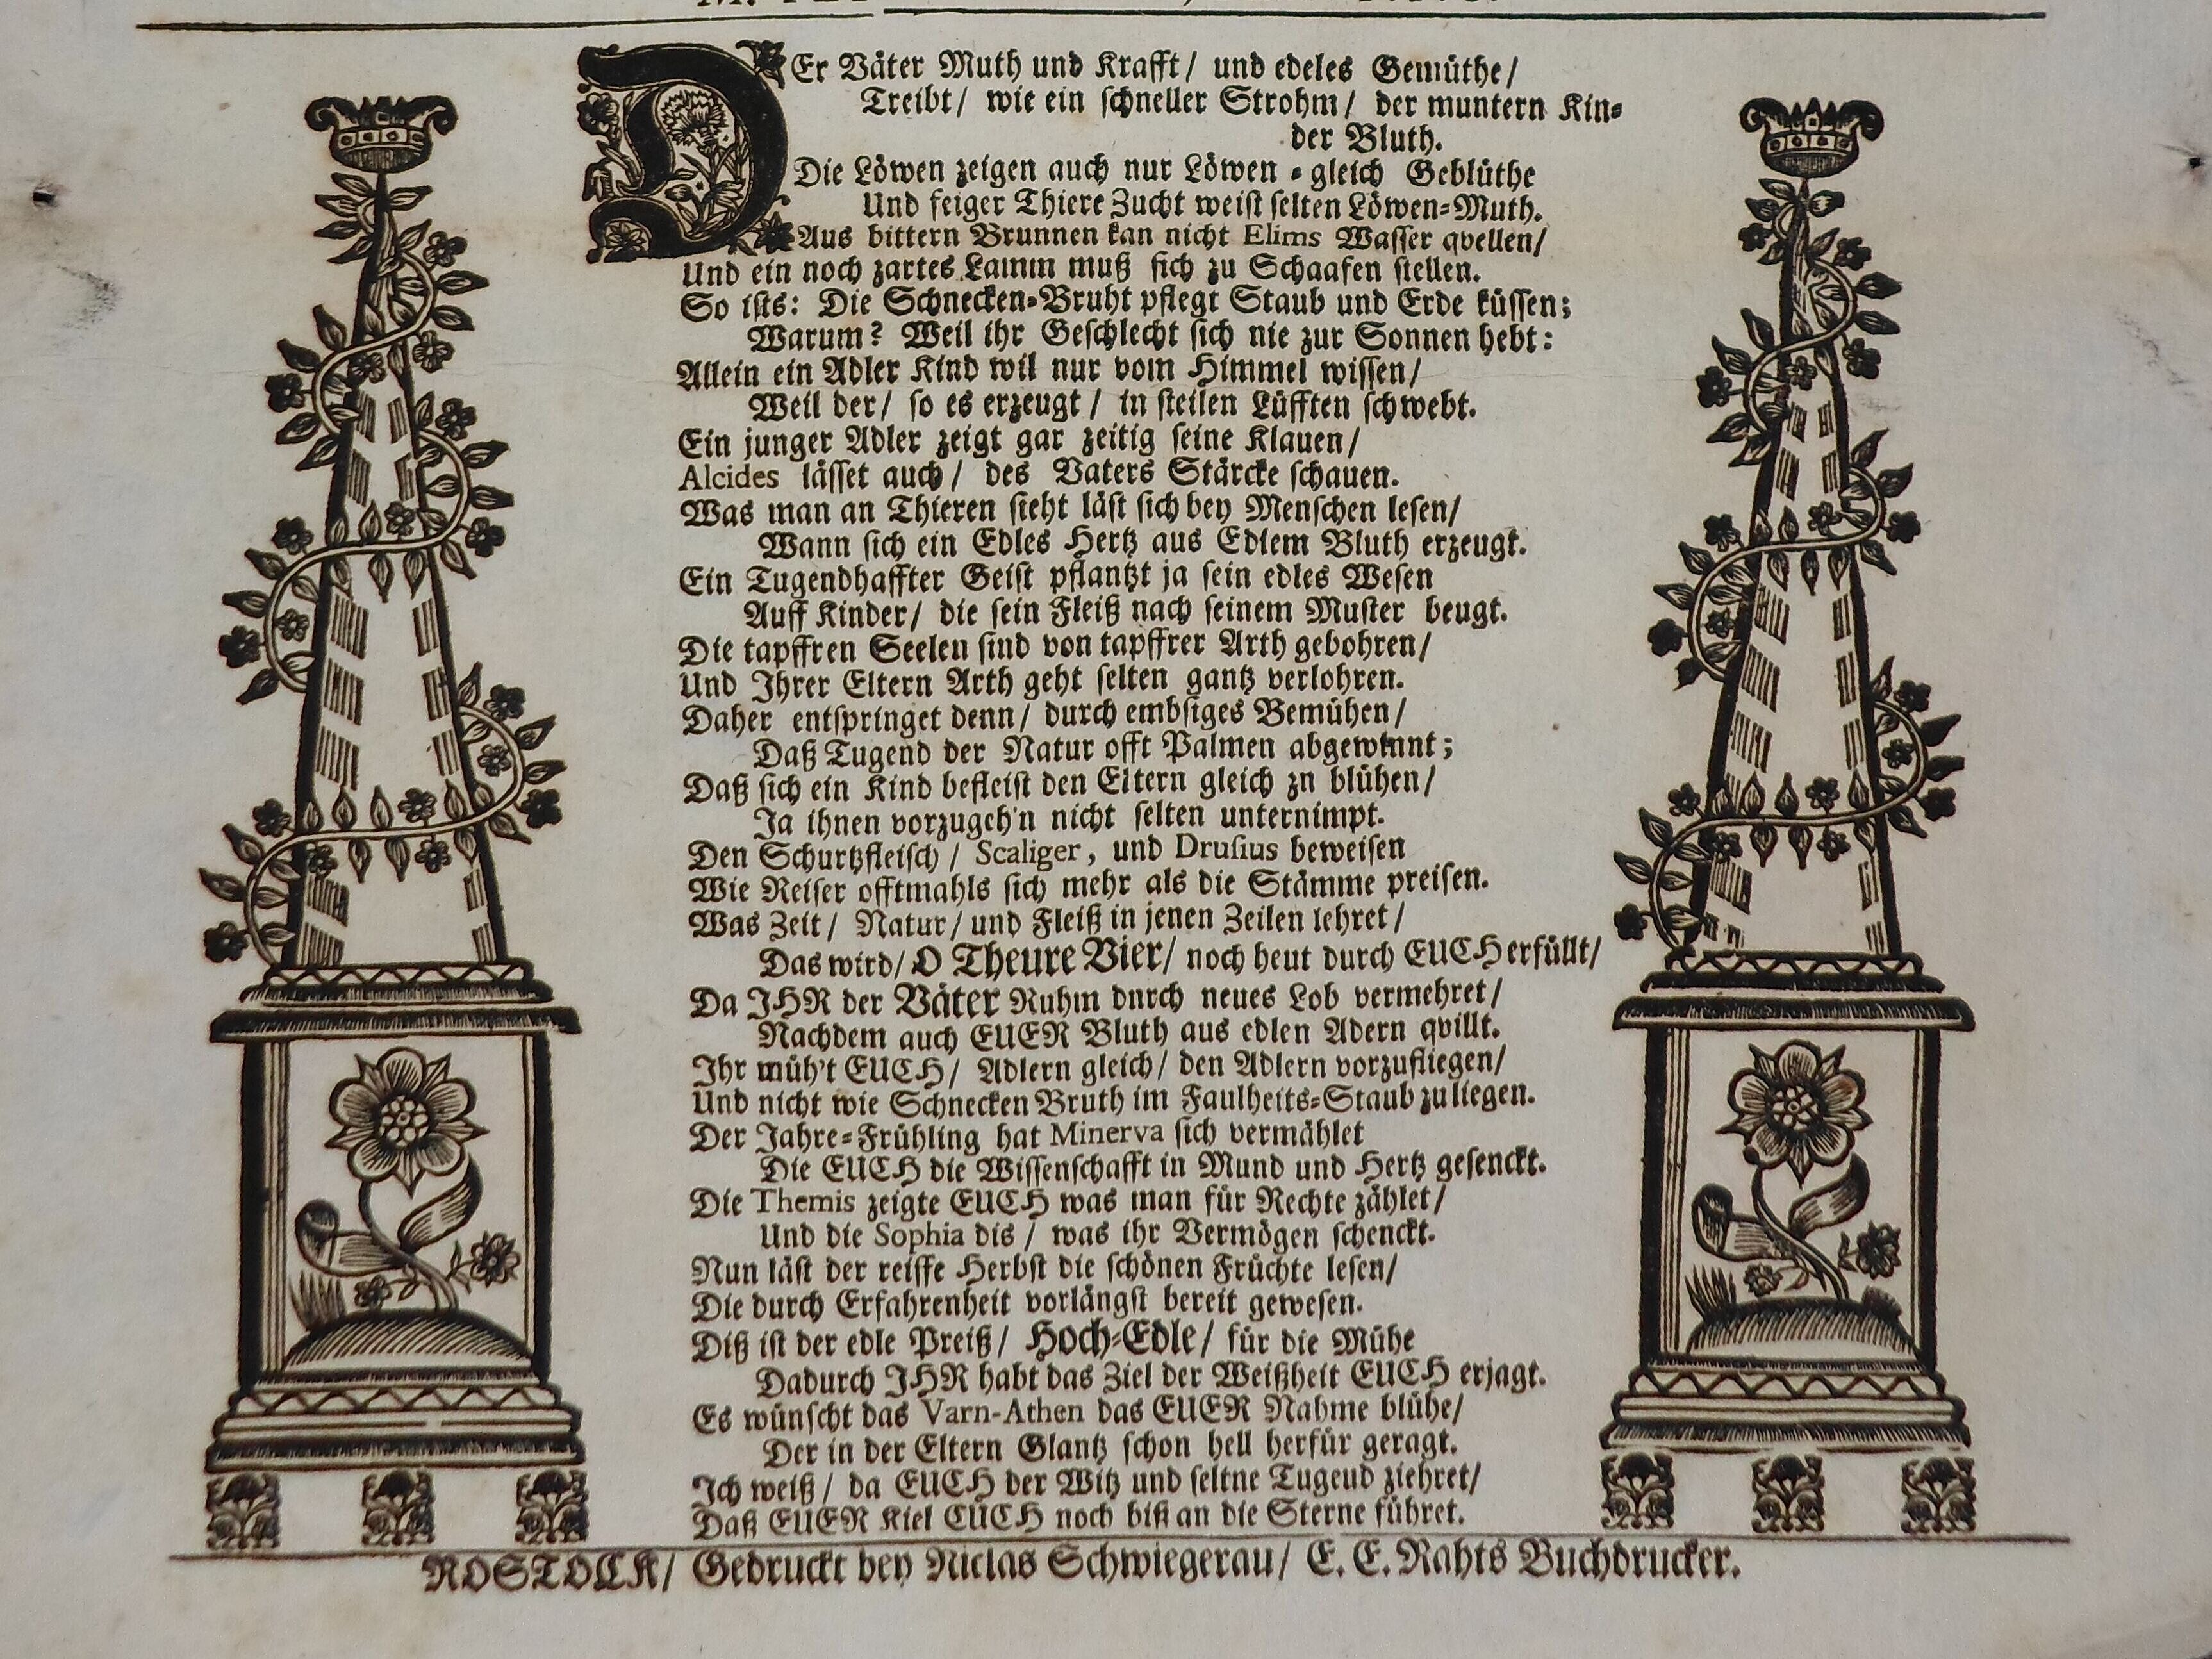 DEr Väter Muth und Krafft/ und edeles Gemüthe/
Treibt/ wie ein schneller Strohm/ der muntern Kin-
der Bluth.
Die Löwen zeigen auch nur Löwen-gleich Geblüthe
Und feiger Thiere Zucht weist selten Löwen-Muth.
Aus bittern Brunnen kan nicht Elims Wasser qvellen/
Und ein noch zartes Lamm muß sich zu Schaafen stellen.
So ists: Die Schnecken-Bruht pflegt Staub und Erde küssen;
Warum? Weil ihr Geschlecht sich nie zur Sonnen hebt:
Allein ein Adler Kind wil nur vom Himmel wissen/
Weil der/ so es erzeugt/ in steilen Lüfften schwebt.
Ein junger Adler zeigt gar zeitig seine Klauen/
Alcides lässet auch/ des Vaters Stärcke schauen.
Was man an Thieren sieht läst sich bey Menschen lesen/
Wann sich ein Edles Hertz aus Edlem Bluth erzeugt.
Ein Tugendhaffter Geist pflantzt ja sein edles Wesen
Auff Kinder/ die sein Fleiß nach seinem Muster beugt.
Die tapffren Seelen sind von tapffrer Arth gebohren/
Und Ihrer Eltern Arth geht selten gantz verlohren.
Daher entspringet denn/ durch embsiges Bemühen/
Daß Tugend der Natur offt Palmen abgewinnt;
Daß sich ein Kind befleist den Eltern gleich zn blühen/
Ja ihnen vorzugeh'n nicht selten unternimpt.
Den Schurtzfleisch/ Scaliger, und Drusius beweisen
Wie Reiser offtmahls sich mehr als die Stämme preisen.
Was Zeit/ Natur/ und Fleiß in jenen Zeilen lehret/
Das wird/ O Theure Vier/ noch heut durch EUCH erfüllt/
Da IHR der Väter Ruhm durch neues Lob vermehret/
Nachdem auch EUER Bluth aus edlen Adern qvillt.
Ihr müh't EUCH/ Adlern gleich/ den Adlern vorzufliegen/
Und nicht wie Schnecken Bruth im Faulheits-Staub zu liegen.
Der Jahre-Frühling hat Minerva sich vermählet
Die EUCH die Wissenschafft in Mund und Hertz gesenckt.
Die Themis zeigte EUCH was man für Rechte zählet/
Und die Sophia dis/ was ihr Vermögen schenckt.
Nun läst der reiffe Herbst die schönen Früchte lesen/
Die durch Erfahrenheit vorlängst bereit gewesen.
Diß ist der edle Preiß/ Hoch-Edle/ für die Mühe
Dadurch IHR habt das Ziel der Weißheit EUCH erjagt.
Es wünscht das Varn-Athen das EUER Nahme blühe/
Der in der Eltern Glantz schon hell herfür geragt.
Ich weiß/ da EUCH der Witz und seltne Tugeud ziehret/
Daß EUER Kiel EUCH noch biß an die Sterne führet.
ROSTOCK/ Gedruckt bey Niclas Schwiegerau/ E. E. Rahts Buchdrucker.